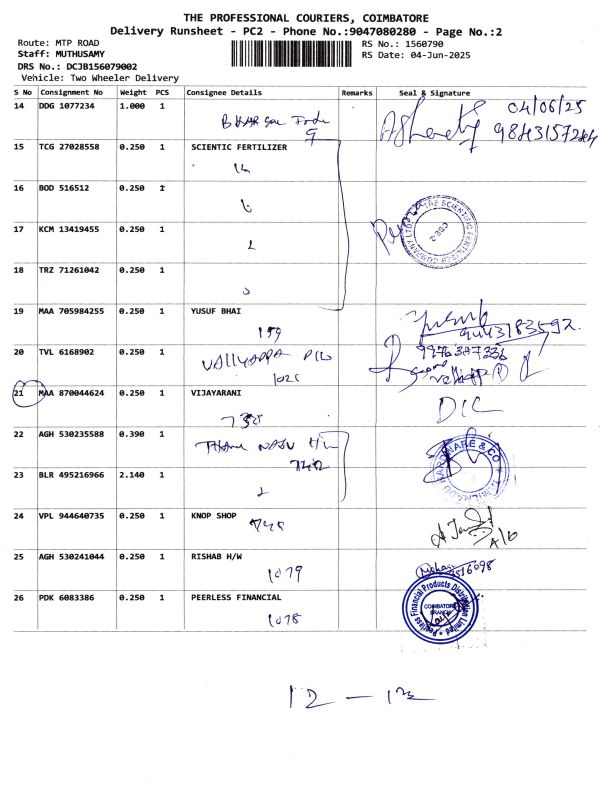 THE PROFESSIONAL COURIERS, COIMBATORE
Delivery Runsheet - PC2 - Phone No.:9047080280 - Page No.:2
Route: MTP ROAD
Staff: MUTHUSAMY
DRS No.: DCJB156079002
Vehicle: Two Wheeler Delivery
RS No.: 1560790
RS Date: 04-Jun-2025
S No Consignment No Weight PCS Consignee Details Remarks Seal & Signature
14 DDG 1077234 1.000 1 04/06/25
9843157244
15 TCG 27028558 0.250 1 SCIENTIC FERTILIZER
16 BOD 516512 0.250 1
THE SCIENTIFIC FERTILISER COMPANY LTD
CBE.2
17 KCM 13419455 0.250 1
18 TRZ 71261042 0.250 1
19 MAA 705984255 0.250 1 YUSUF BHAI
159
9443183592
20 TVL 6168902 0.250 1
1025
21 MAA 870044624 0.250 1 VIJAYARANI
730 DIL
22 AGH 530235588 0.390 1
742
HARDWARE & CO
23 BLR 495216966 2.140 1
24 VPL 944640735 0.250 1 KNOP SHOP
25 AGH 530241044 0.250 1 RISHAB H/W
1079
26 PDK 6083386 0.250 1 PEERLESS FINANCIAL
1078
Peerless Financial Products Distribution Limited
COIMBATORE
BRANCH
12 - 12